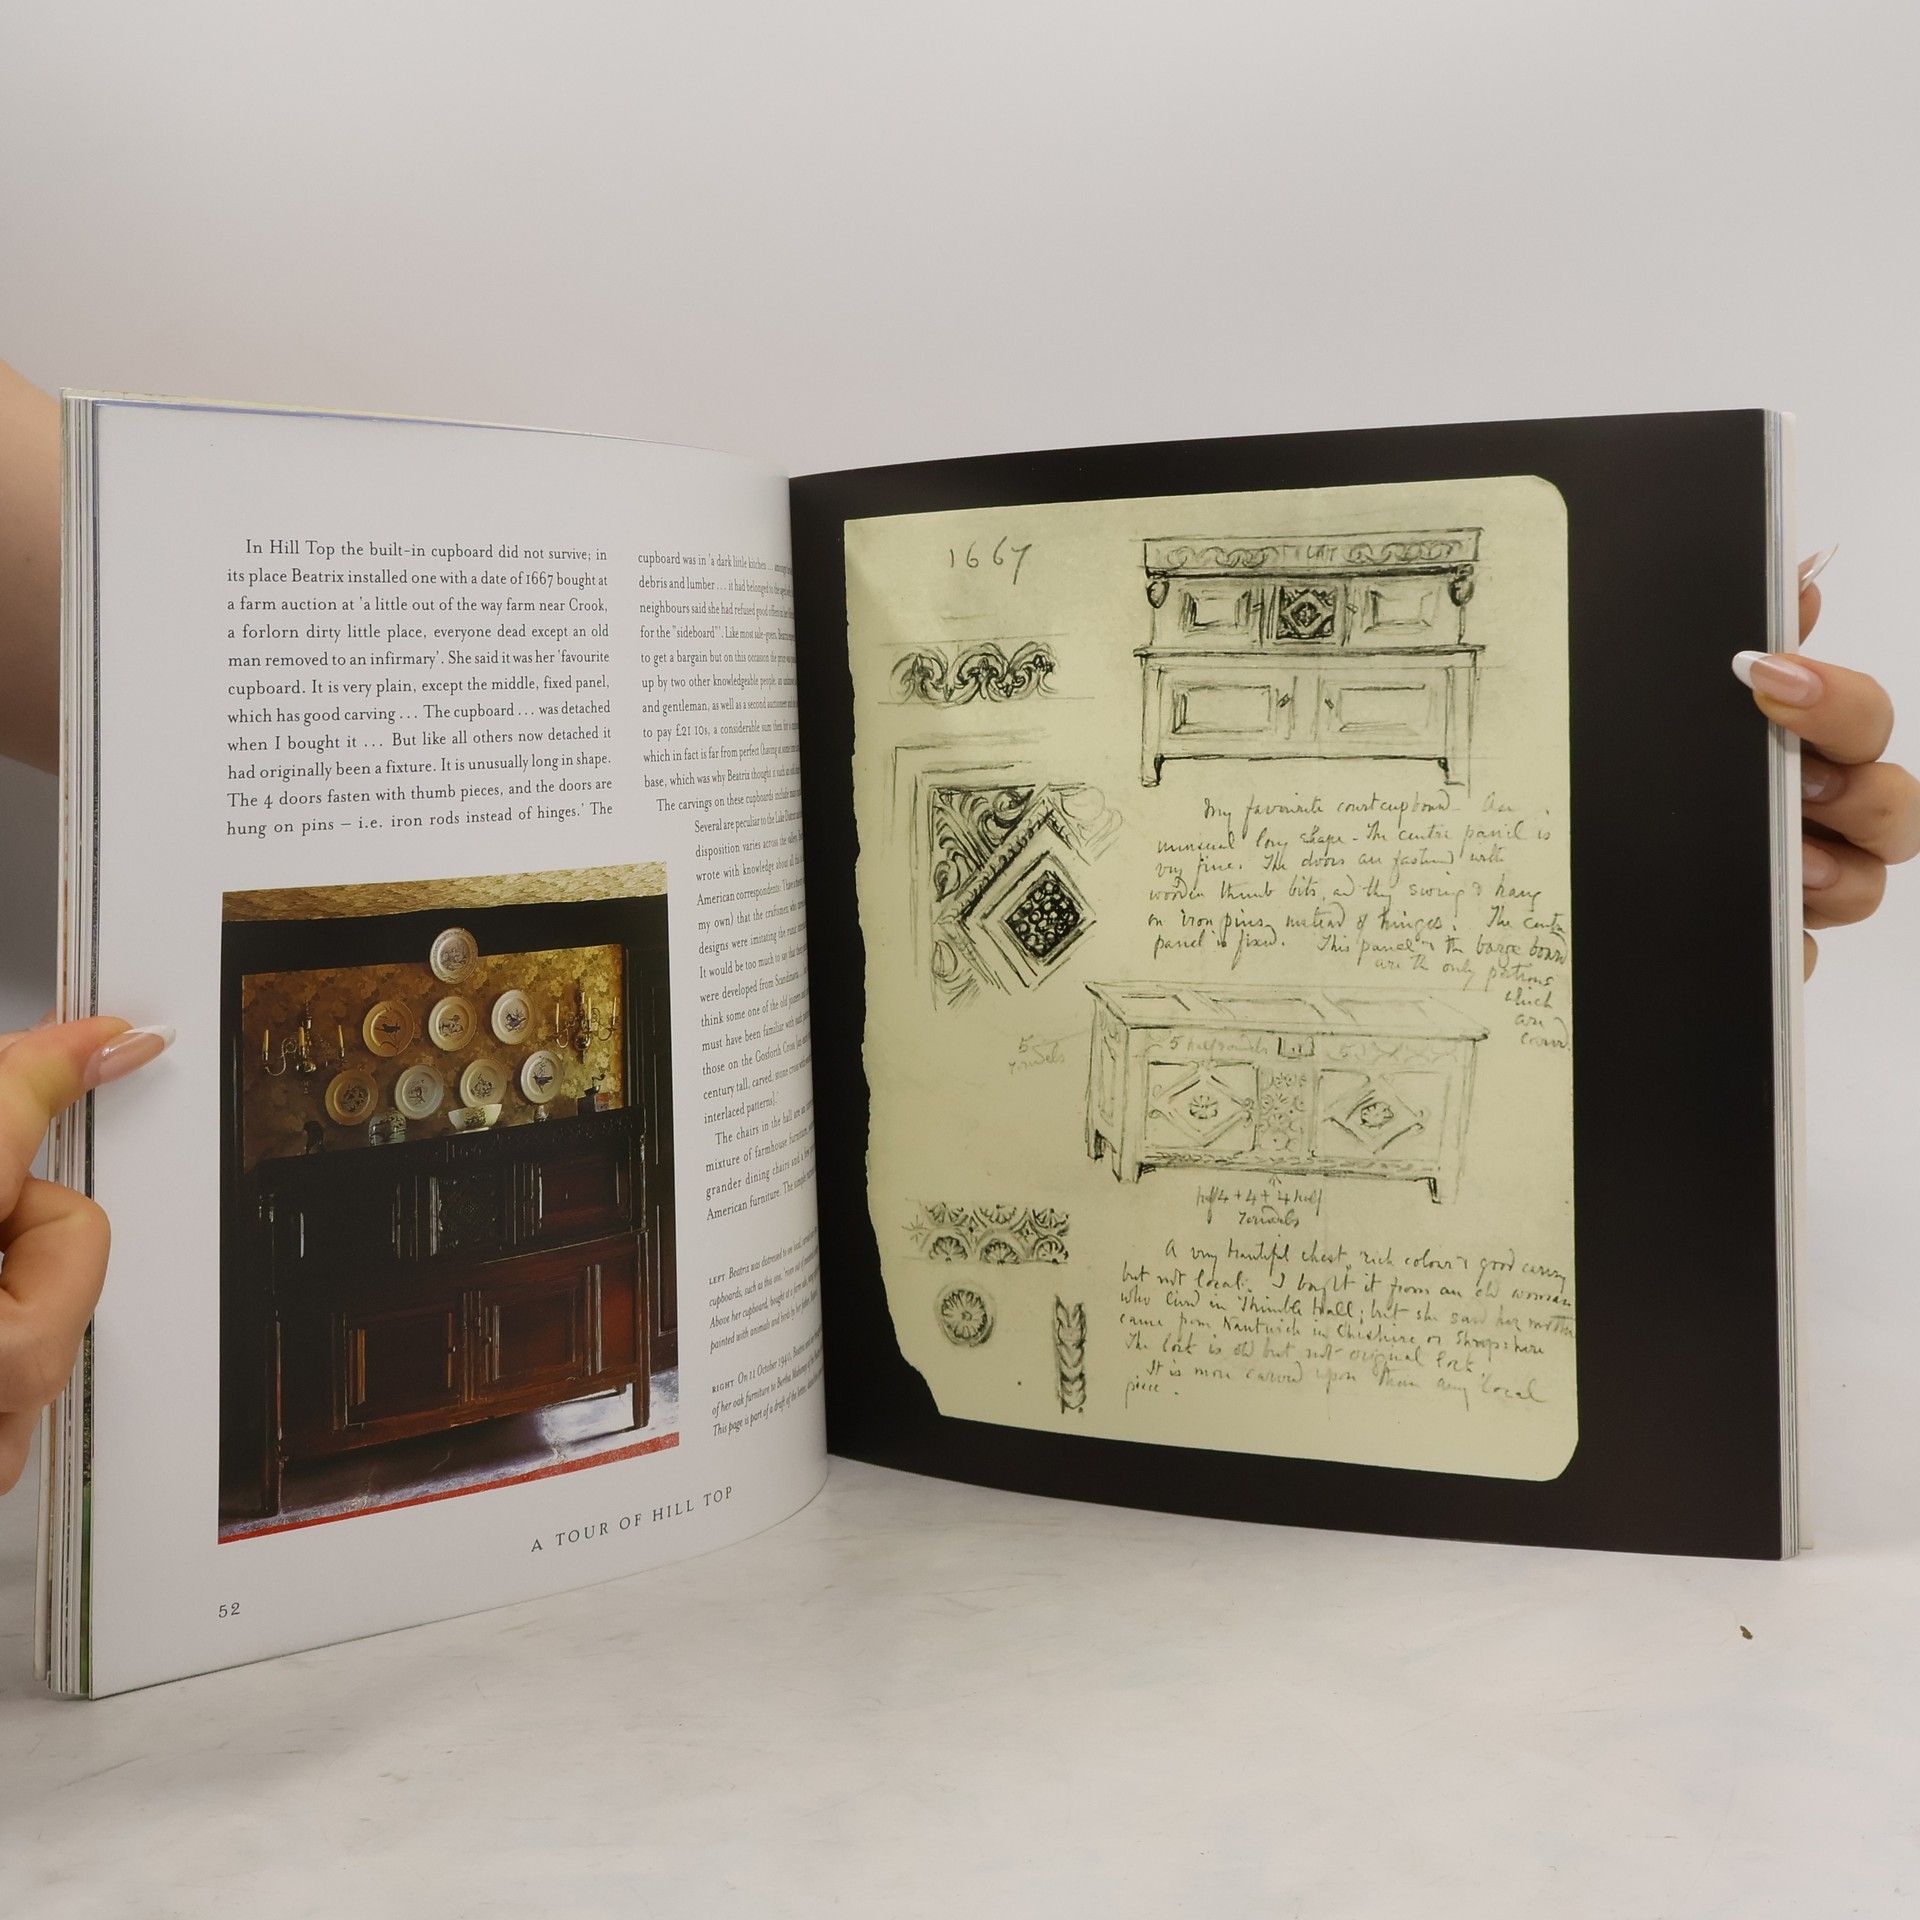 In Hill Top the built-in cupboard did not survive; in
its place Beatrix installed one with a date of 1667 bought at
a farm auction at 'a little out of the way farm near Crook,
a forlorn dirty little place, everyone dead except an old
man removed to an infirmary'. She said it was her 'favourite
cupboard. It is very plain, except the middle, fixed panel,
which has good carving ... The cupboard ... was detached
when I bought it ... But like all others now detached it
had originally been a fixture. It is unusually long in shape.
The 4 doors fasten with thumb pieces, and the doors are
hung on pins – i.e. iron rods instead of hinges.' The
cupboard was in 'a dark little kitchen ...
debris and lumber ... it had belonged to the
neighbours said she had refused good offers
for the "sideboard"'. Like most sale-goers, Beatrix
to get a bargain but on this occasion the price was
up by two other knowledgeable people,
and gentleman, as well as a second
to pay £21 10s, a considerable sum then for
which in fact is far from perfect (having at some
base, which was why Beatrix thought it such an
The carvings on these cupboards include
Several are peculiar to the Lake District
disposition varies across the
wrote with knowledge about all
American correspondents: 'I have a
my own) that the craftsmen who
designs were imitating the runic
It would be too much to say that
were developed from Scandinavia
think some one of the old
must have been familiar with such
those on the Gosforth Cross
century tall, carved, stone cross with
interlaced patterns].'
The chairs in the hall are
mixture of farmhouse furniture,
grander dining chairs and a few
American furniture. The simple
LEFT Beatrix was distressed to see
cupboards, such as this one,
Above her cupboard, bought at a farm sale,
painted with animals and birds by her father,
RIGHT On 11 October 1940, Beatrix
of her oak furniture to Bertha Mahony
This page is part of a draft of the letter,
A TOUR OF HILL TOP
52
1667
My favourite court cupboard – An
unusual long shape – The centre panel is
very fine. The doors are fastened with
wooden thumb bits, and they swing & hang
on iron pins, instead of hinges. The centre
panel is fixed. This panel & the barge board
are the only portions
which
are
carved.
5
roundels
5 half roundels
5
half 4 + 4 + 4 half
roundels
A very beautiful chest, rich colour & good carving
but not local. I bought it from an old woman
who lived in Thimble Hall; but she said her mother
came from Nantwich in Cheshire or Shropshire
The lock is old but not original lock
It is more carved upon than any local
piece.